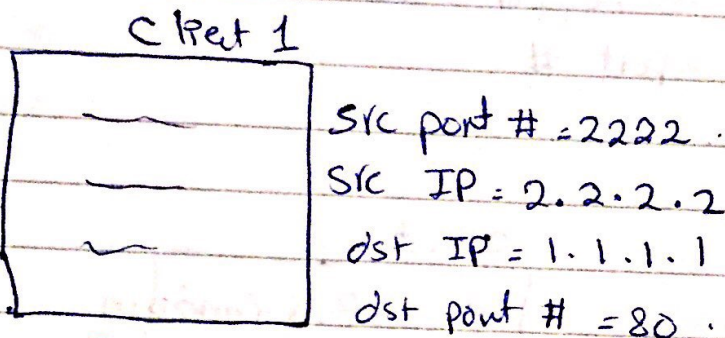 Client 1
Src port # = 2222.
Src IP = 2.2.2.2
dst IP = 1.1.1.1
dst port # = 80.